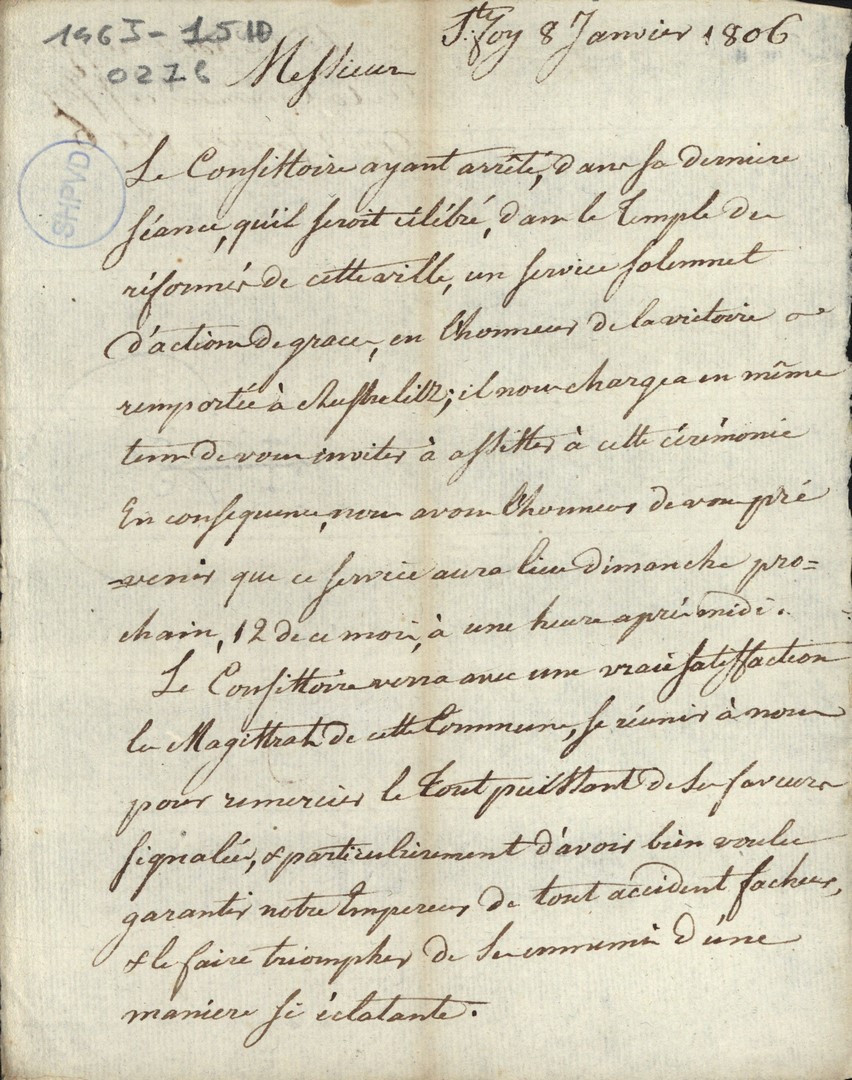 1963-15 HD
0276
Ste foy 8 Janvier 1806
Messieurs
SHPVD
Le Consistoire ayant arrêté, dans sa derniere
séance, qu'il seroit célébré, dans le Temple des
réformés de cette ville, un service solemnel
d'actions de graces, en l'honneur de la victoire
remportée à Austrelitz; il nous chargea en même
tems de vous inviter à assister à cette cérémonie
En consequence, nous avons l'honneur de vous pré
-venir que ce service aura lieu dimanche pro=
chain, 12 de ce mois, à une heure après midi.
Le Consistoire verra avec une vraie satisfaction
les Magistrats de cette Commune, se réunir à nous
pour remercier le tout puissant de ses faveurs
signalées, & particulierement d'avoir bien voulu
garantir notre Empereur de tout accident facheux,
& le faire triompher de ses ennemis d'une
maniere si éclatante.